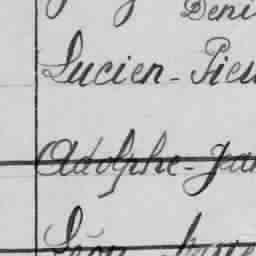 Deni
Lucien-Pieu
Adolphe-Jan
Léon